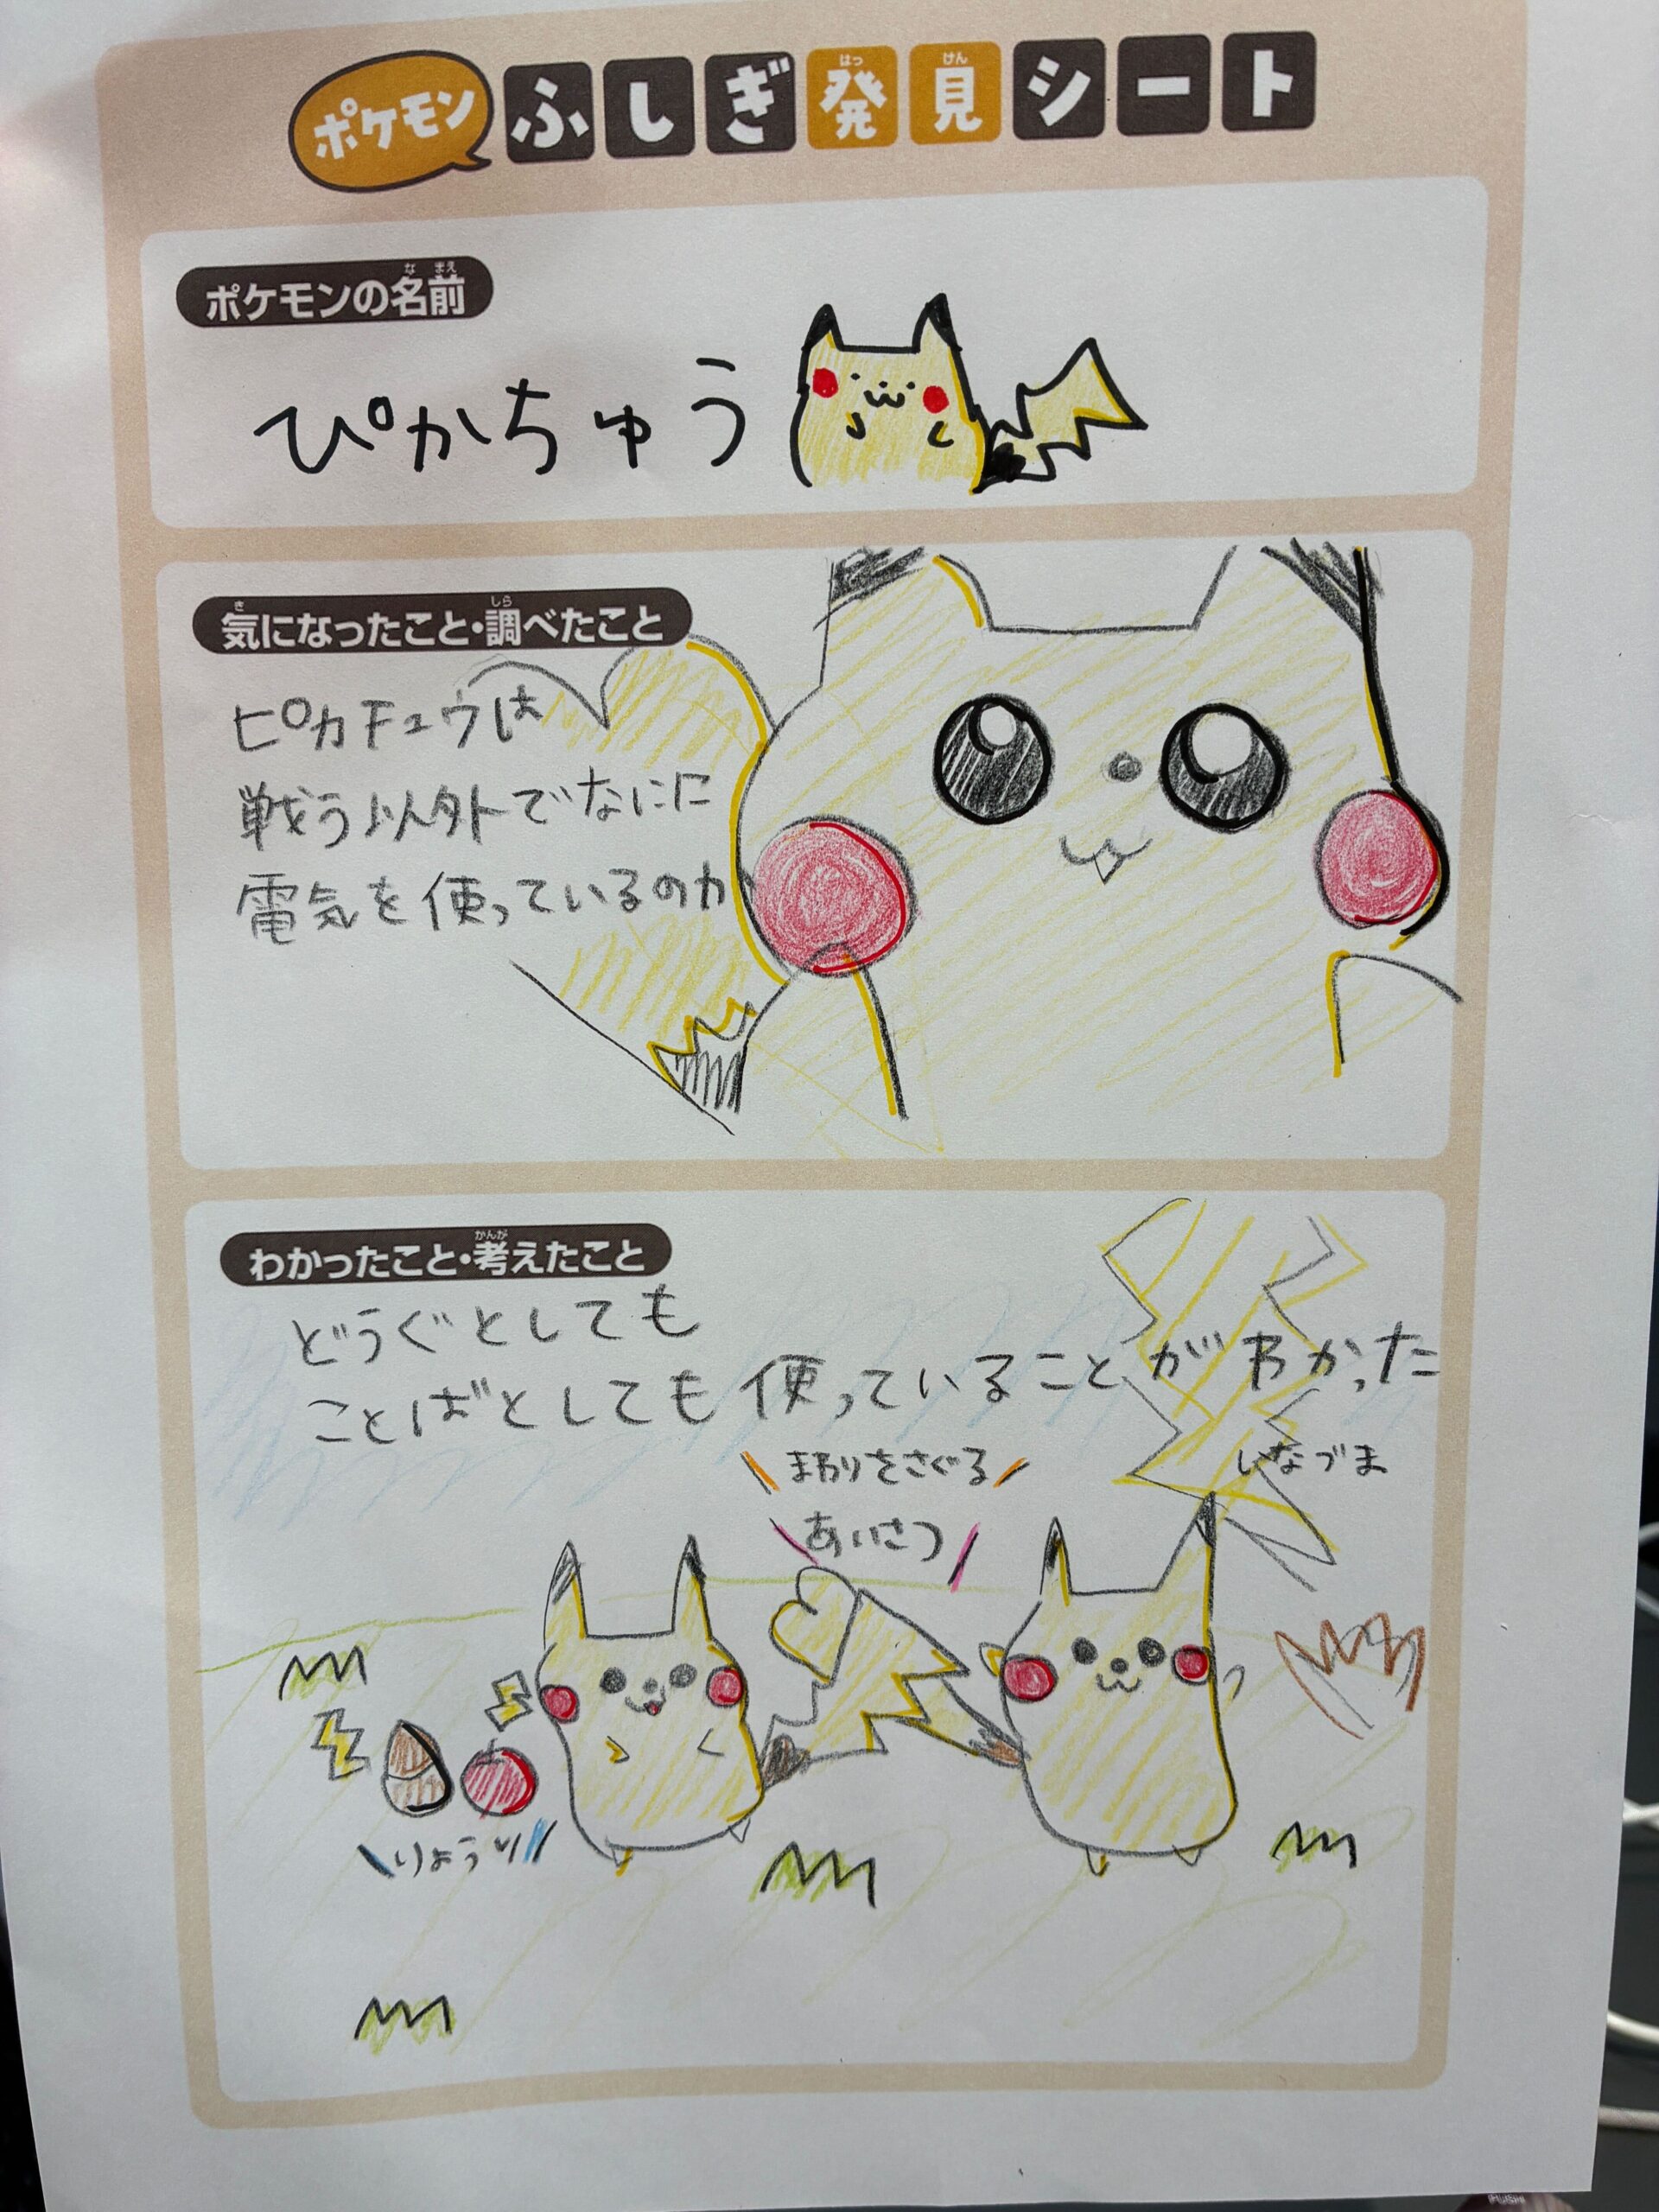 ポケモン ふしぎ発見シート
ポケモンの名前
ぴかちゅう
気になったこと・調べたこと
ピカチュウは
戦う以外でなにに
電気を使っているのか
わかったこと・考えたこと
どうぐとしても
ことばとしても使っていることがわかった
まわりをさぐる
いなづま
あいさつ
りょうり